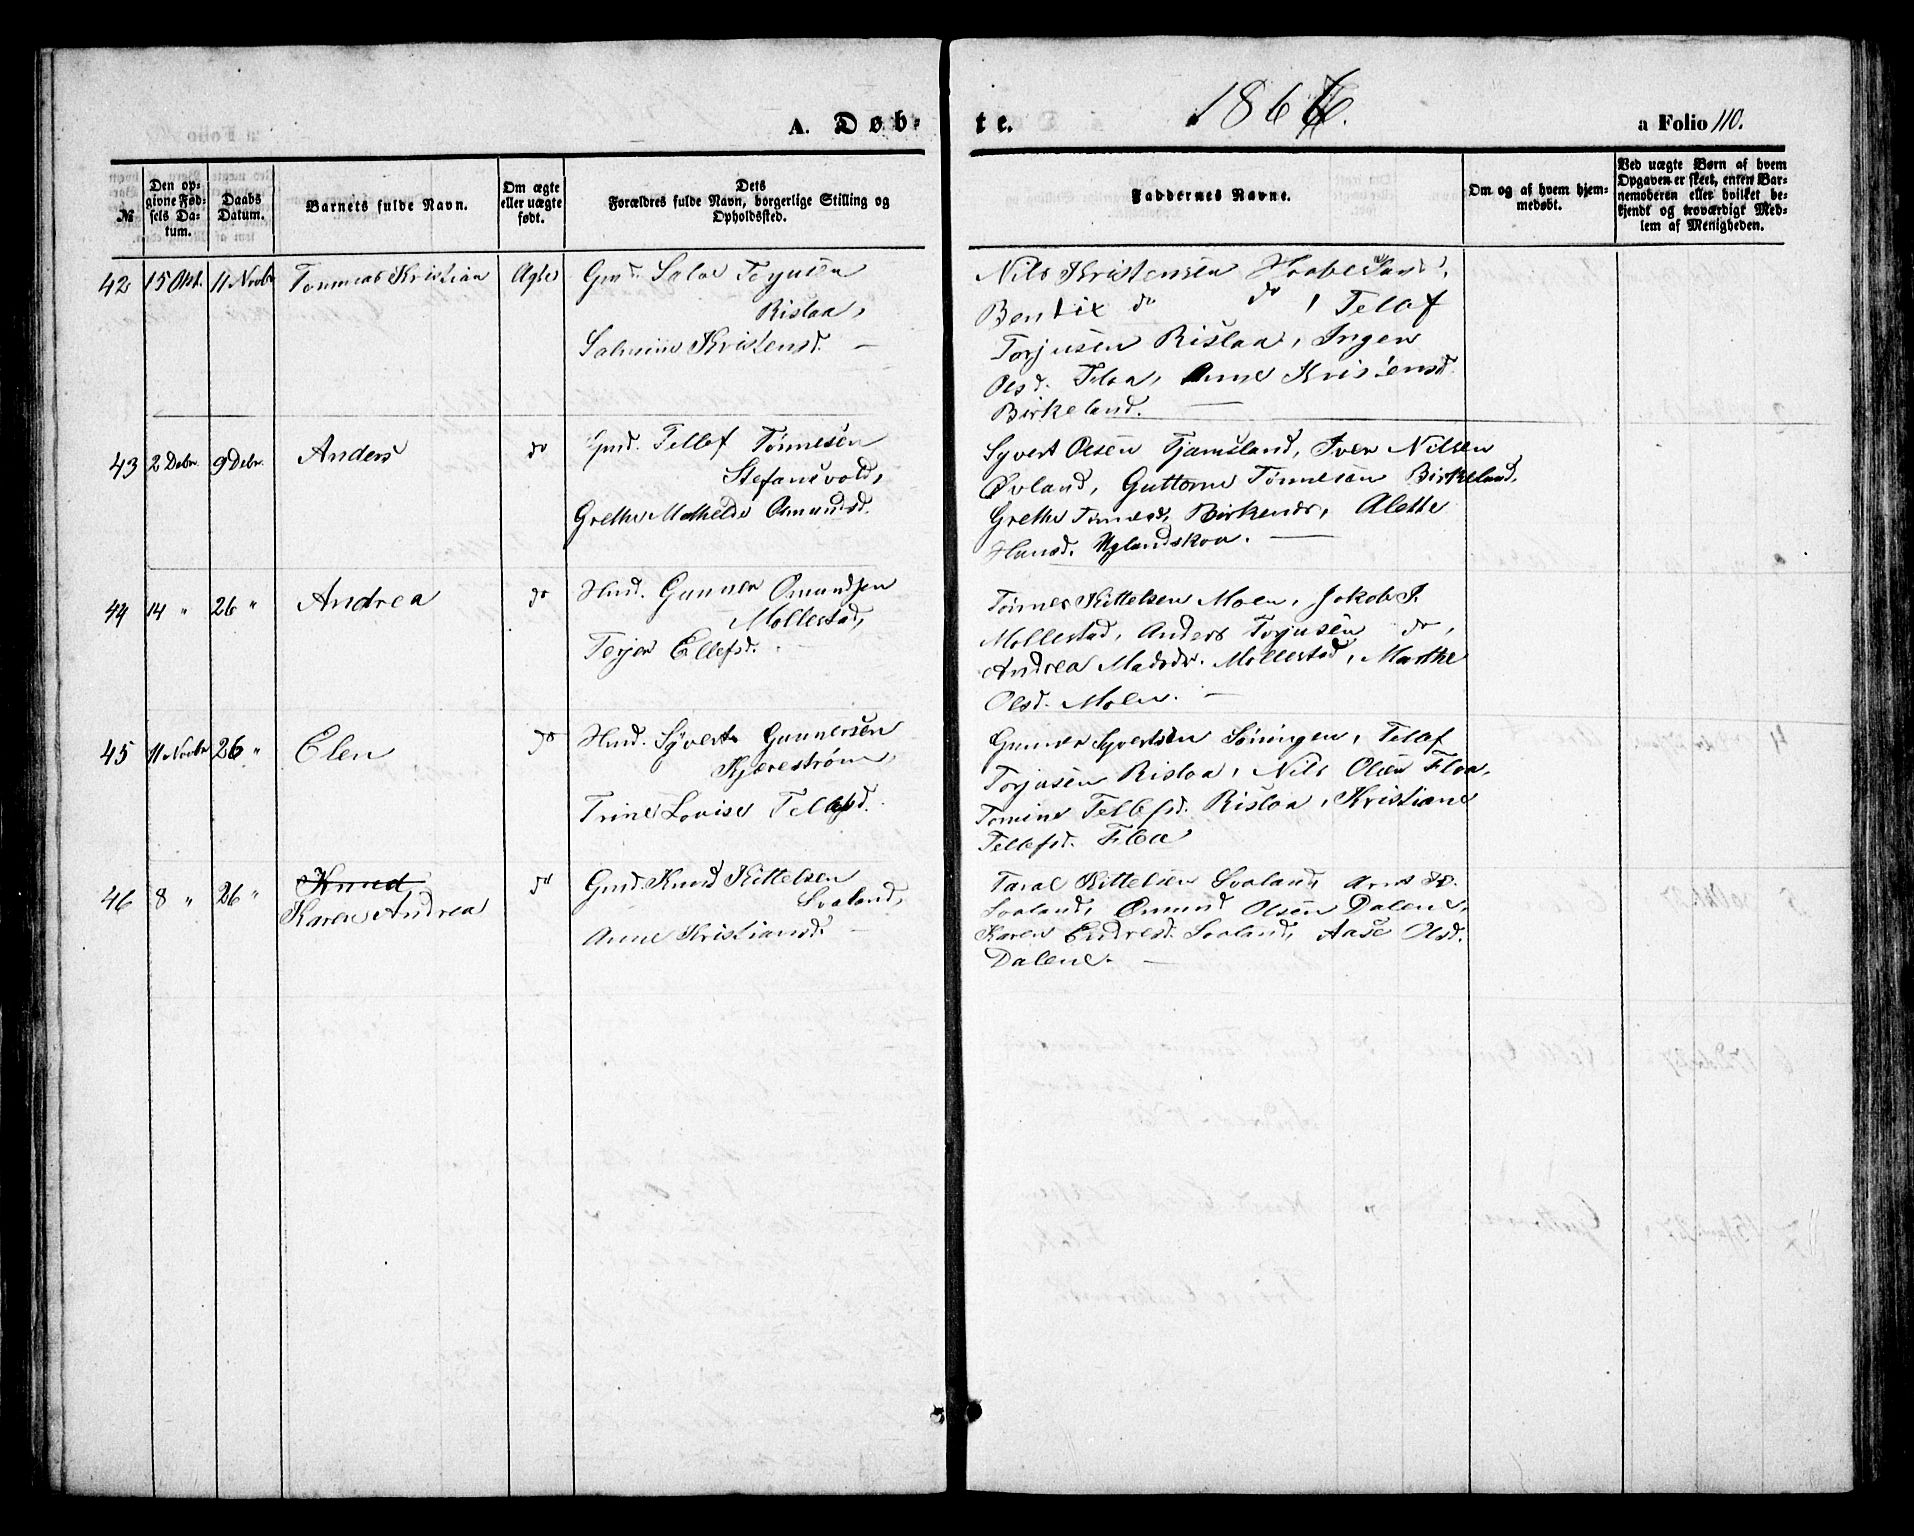 A. Døb-
te.
1866.
a Folio 110.
№
Den op-
givne Fød-
sels Da-
tum.
Daabs
Datum.
Barnets fulde Navn.
Om ægte
eller uægte
født.
Dets
Forældres fulde Navn, borgerlige Stilling og
Opholdssted.
Faddernes Navne.
Om og af hvem hjem-
medøbt.
Ved uægte Børn af hvem
Opgaven er skeet, enten Bar-
nemoderen eller hvilket be-
kjendt og troværdigt Med-
lem af Menigheden.
42 15 Okt. 11 Novbr Tommas Kristian Ægte
Gmd. Salve Torjusen
Rislaa,
Salmine Kristensd. —
Nils Kristensen Haabesland,
Bentix do do, Tellef
Torjusen Rislaa, Ingen
Olsd. Floa, Anne Kristensd.
Birkeland. —
43 2 Debr. 9 Debr. Anders do
Gmd. Tellef Tønnesen
Stefansvold,
Grethe Mathilde Omundsd.
Syvert Olsen Tjamsland, Iver Nilsen
Øvland, Guttorm Tønnesen Birkeland,
Grethe Tønnesd. Birkenes, Alette
Hansd. Uglandskaa. —
44 14 " 26 " Andrea do
Hmd. Gunner Omundsen
Mollestad,
Terjer Ellefsd. —
Tønnes Kittelsen Moen, Jakob J.
Mollestad, Anders Torjusen do,
Andrea Madsdr. Mollestad, Marthe
Olsd. Moen. —
45 11 Novbr 26 " Elen do
Hmd. Syvert Gunnersen
Kjerestrøm,
Trine Lovise Tellefsd.
Gunner Syvertsen Søningen, Tellef
Torjusen Rislaa, Nils Olsen Floa,
Tomine Tellefsd. Rislaa, Kristiane
Tellefsd. Floa
46 8 " 26 " Knud
Karen Andrea do
Gmd. Knud Kittelsen
Svaland,
Anne Kristiansd. —
Taral Kittelsen Svaland, Arne
Svaland, Omund Olsen Dalene,
Karen Endresd. Svaland, Aase Olsd.
Dalene. —